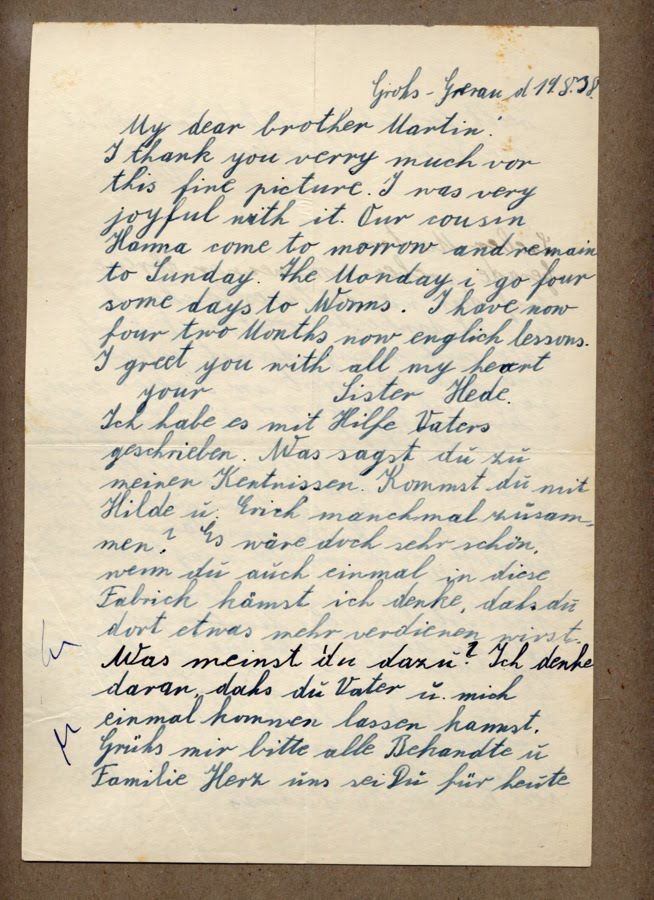 Grohs-Gerau d 19.8.38.
My dear brother Martin!
I thank you verry much vor
this fine picture. I was very
joyful with it. Our cousin
Hanna come to morrow and remain
to Sunday. The Monday i go four
some days to Worms. I have now
four two Months now englich lessons.
I greet you with all my heart
your Sister Hede.
Ich habe es mit Hilfe Vaters
geschrieben. Was sagst du zu
meinen Kentnissen. Kommst du mit
Hilde u. Erich manchmal zusam-
men? Es wäre doch sehr schön,
wenn du auch einmal in diese
Fabrick kämst ich denke, dahs du
dort etwas mehr verdienen wirst.
Was meinst du dazu? Ich denke
daran, dahs du Vater u. mich
einmal kommen lassen kannst.
Grühs mir bitte alle Bekandte u
Familie Herz uns sei Du für heute